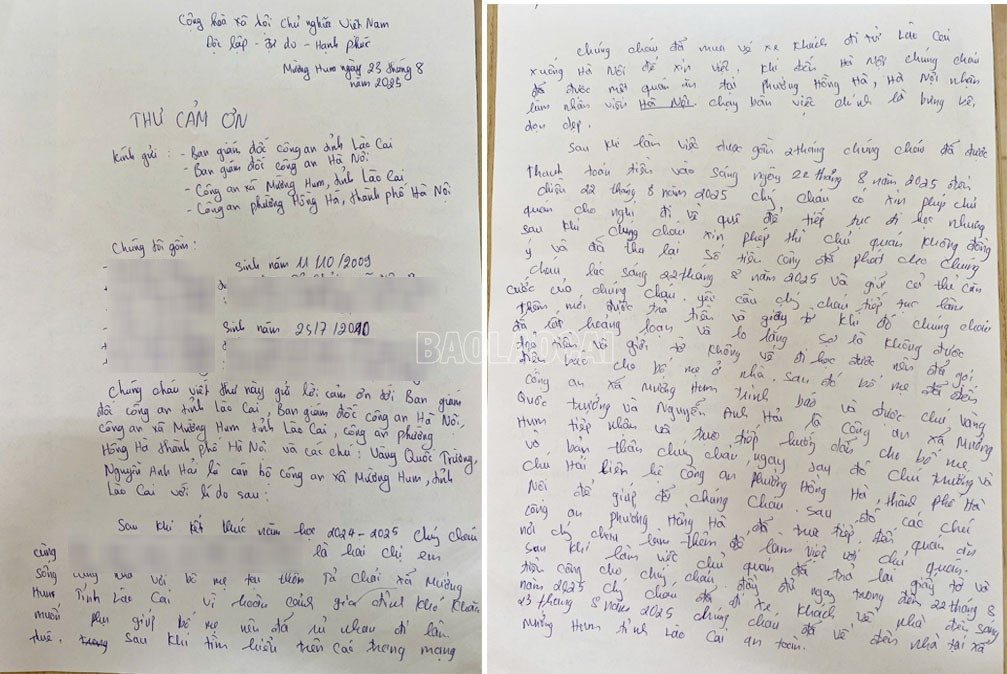 Cộng hoà xã hội chủ nghĩa Việt Nam
Độc lập - Tự do - Hạnh phúc
Mường Hum ngày 23 tháng 8
năm 2025
THƯ CẢM ƠN
Kính gửi : - Ban giám đốc công an tỉnh Lào Cai
- Ban giám đốc công an Hà Nội
- Công an xã Mường Hum, tỉnh Lào Cai
- Công an phường Hồng Hà, thành phố Hà Nội
Chúng tôi gồm :
Sinh năm 11/10/2009
Sinh năm 25/7/2010
Chúng cháu viết thư này gửi lời cảm ơn tới Ban giám
đốc công an tỉnh Lào Cai, Ban giám đốc công an Hà Nội,
công an xã Mường Hum tỉnh Lào Cai, công an phường
Hồng Hà thành phố Hà Nội và các chú : Vàng Quốc Trường,
Nguyễn Anh Hải là cán bộ công an xã Mường Hum, tỉnh
Lào Cai với lí do sau :
Sau khi kết thúc năm học 2024 - 2025 chúng cháu
là hai chị em
cùng
sống cùng nhà với bố mẹ tại thôn Tả Chải xã Mường
Hum tỉnh Lào Cai. Vì hoàn cảnh gia đình khó khăn
muốn phụ giúp bố mẹ nên đã rủ nhau đi làm
thuê. sau khi tìm hiểu trên các trang mạng
chúng cháu đã mua vé xe khách đi từ Lào Cai
xuống Hà Nội để xin việc. Khi đến Hà Nội chúng cháu
đã được một quán ăn tại phường Hồng Hà, Hà Nội nhận
làm nhân viên Hà Nội chạy bàn việc chính là bưng bê,
dọn dẹp.
Sau khi làm việc được gần 2 tháng chúng cháu đã được
thanh toán tiền vào sáng ngày 22 tháng 8 năm 2025 đến
chiều 22 tháng 8 năm 2025 chúng cháu có xin phép chủ
quán cho nghỉ đi về quê để tiếp tục đi học nhưng
sau khi chúng cháu xin phép thì chủ quán không đồng
ý và đã thu lại số tiền công đã phát cho chúng
cháu lúc sáng 22 tháng 8 năm 2025 và giữ cả thẻ căn
cước của chúng cháu, yêu cầu chúng cháu tiếp tục làm
thêm mới được trả tiền và giấy tờ khi đó chúng cháu
đã rất hoang loan và lo lắng sợ là không được
trả tiền và giấy tờ không về đi học được nên đã gọi
điện báo cho bố mẹ ở nhà. Sau đó bố mẹ đã đến
công an xã Mường Hum trình báo và được chú Vàng
Quốc Trường và Nguyễn Anh Hải là công an xã Mường
Hum tiếp nhận và trực tiếp hướng dẫn cho bố mẹ
và bản thân chúng cháu, ngay sau đó chú Trường và
chú Hải liên hệ công an phường Hồng Hà, thành phố Hà
Nội để giúp đỡ chúng cháu. Sau đó các chú
công an phường Hồng Hà đã trực tiếp đến quán ăn
nơi chúng cháu làm thêm để làm việc với chủ quán.
sau khi làm việc chủ quán đã trả lại giấy tờ và
tiền công cho chúng cháu đầy đủ ngay trong đêm 22 tháng 8
năm 2025 chúng cháu đã đi xe khách về nhà đến sáng
23 tháng 8 năm 2025 chúng cháu đã về đến nhà tại xã
Mường Hum tỉnh Lào Cai an toàn.
BAOLAOCAI